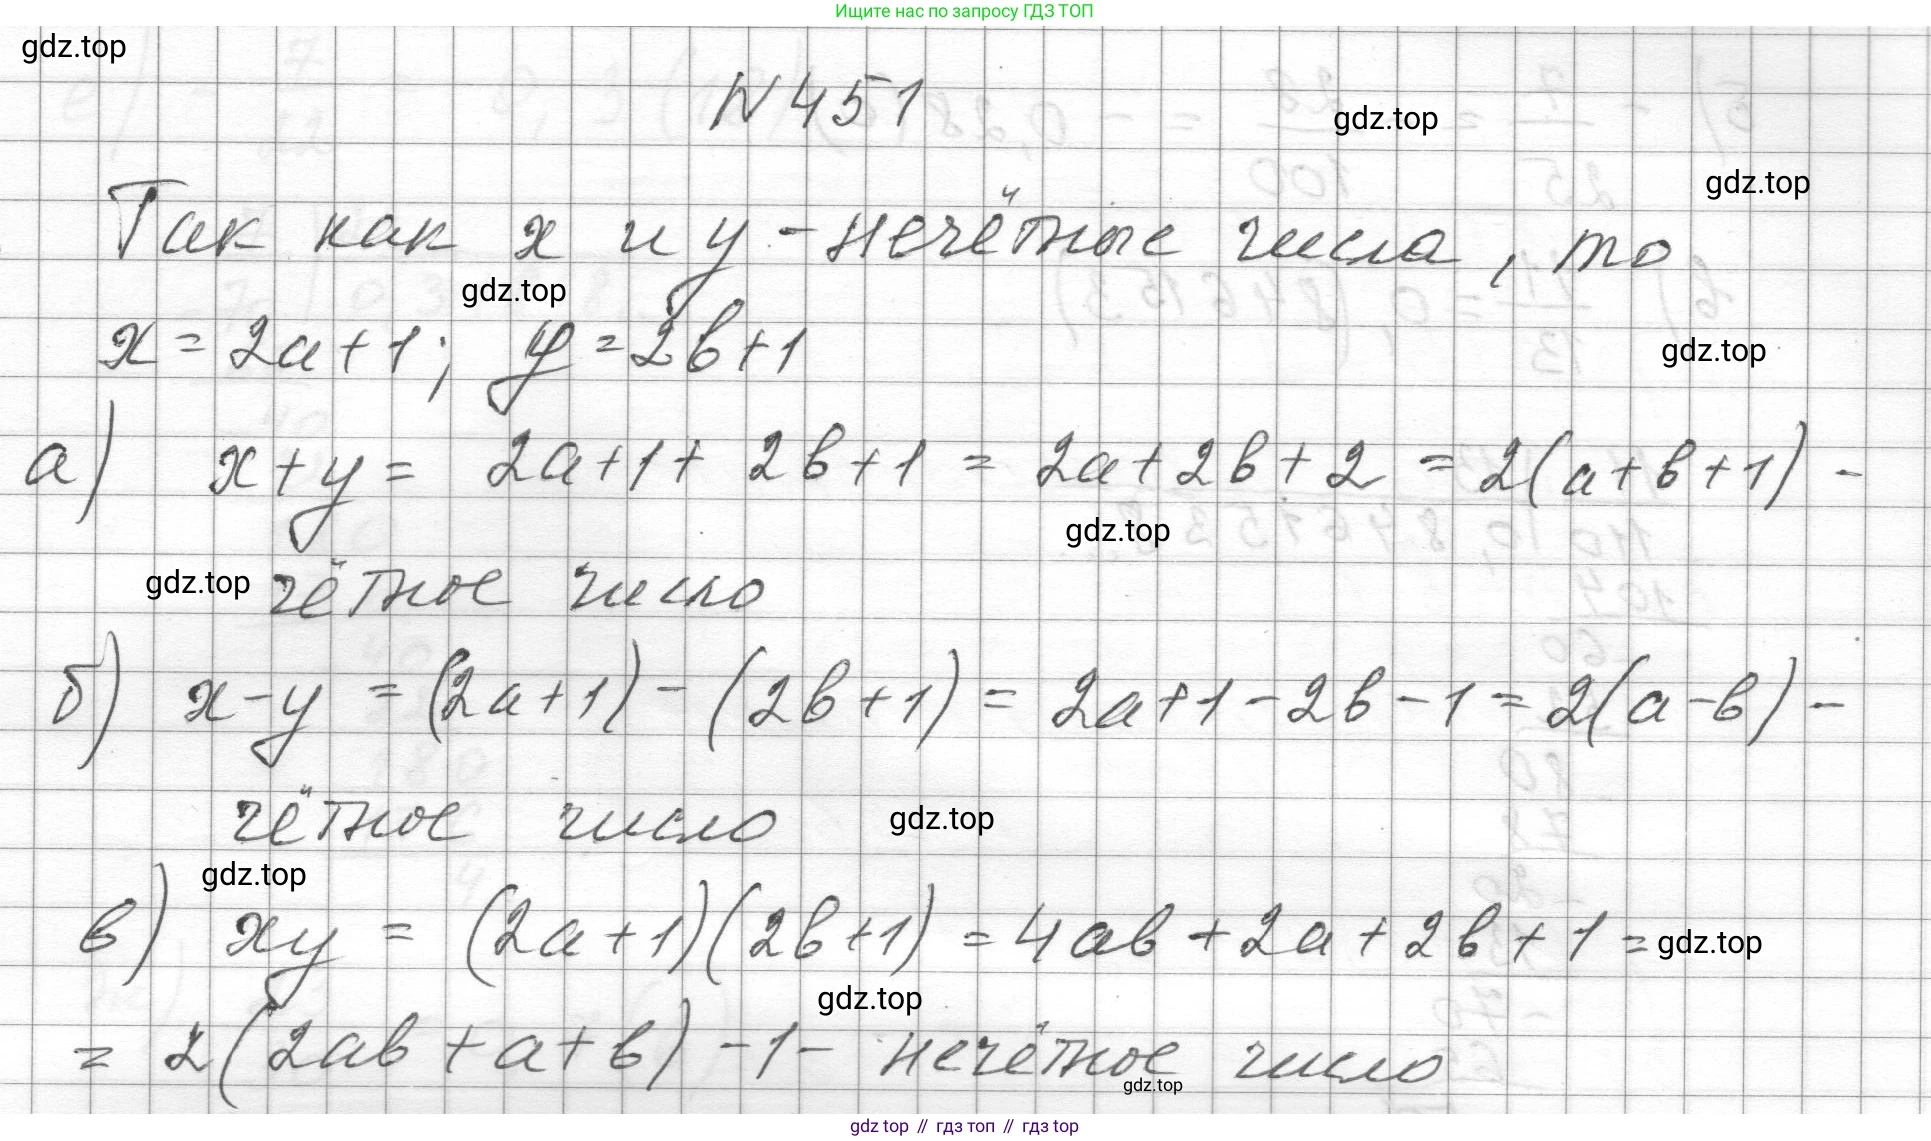 Ищите нас по запросу ГДЗ ТОП
gdz.top
N 451
gdz.top
gdz.top
Так как x и y - нечётные числа, то
gdz.top
x = 2a+1; y = 2b+1
gdz.top
а) x+y = 2a+1+ 2b+1 = 2a+2b+2 = 2(a+b+1) -
gdz.top
gdz.top
чётное число
б) x-y = (2a+1) - (2b+1) = 2a+1-2b-1 = 2(a-b) -
чётное число
gdz.top
gdz.top
в) xy = (2a+1)(2b+1) = 4ab+2a+2b+1 =
gdz.top
gdz.top
= 2(2ab+a+b) -1- нечётное число
gdz.top
gdz top // гдз топ // гдз top